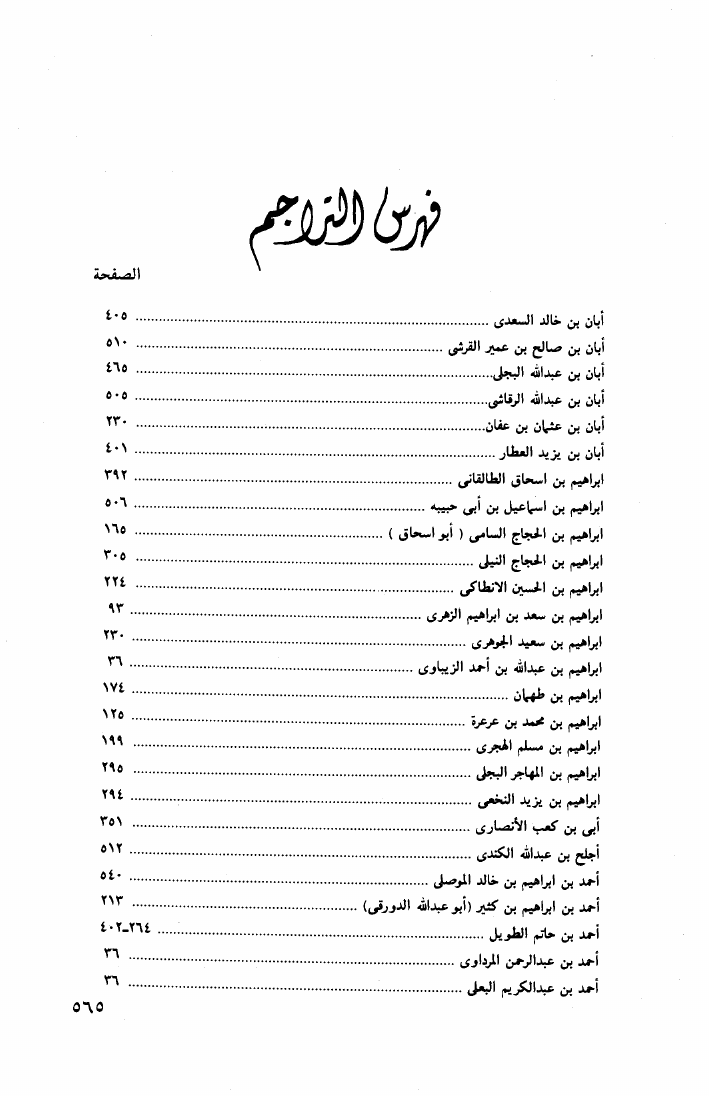 فهرس التراجم
الصفحة
أبان بن خالد السعدى ........ ٤٠٥
أبان بن صالح بن عمير القرشى ........ ٥١٠
أبان بن عبدالله البجلى ........ ٤٦٥
أبان بن عبدالله الرقاشى ........ ٥٠٥
أبان بن عثمان بن عفان ........ ٢٣٠
أبان بن يزيد العطار ........ ٤٠١
ابراهيم بن اسحاق الطالقانى ........ ٣٩٢
ابراهيم بن اسماعيل بن أبى حبيبه ........ ٥٠٦
ابراهيم بن الحجاج السامى ( أبو اسحاق ) ........ ١٦٥
ابراهيم بن الحجاج النيلى ........ ٣٠٥
ابراهيم بن الحسين الانطاكى ........ ٢٢٤
ابراهيم بن سعد بن ابراهيم الزهرى ........ ٩٣
ابراهيم بن سعيد الجوهرى ........ ٢٣٠
ابراهيم بن عبدالله بن أحمد الزيباوى ........ ٣٦
ابراهيم بن طهمان ........ ١٧٤
ابراهيم بن محمد بن عرعرة ........ ١٢٥
ابراهيم بن مسلم الهجرى ........ ١٩٩
ابراهيم بن المهاجر البجلى ........ ٢٩٥
ابراهيم بن يزيد النخعى ........ ٢٩٤
أبى بن كعب الأنصارى ........ ٣٥١
أجلح بن عبدالله الكندى ........ ٥١٢
أحمد بن ابراهيم بن خالد الموصلى ........ ٥٤٠
أحمد بن ابراهيم بن كثير (أبو عبدالله الدورقى) ........ ٢١٣
أحمد بن حاتم الطويل ........ ٢٦٤-٤٠٢
أحمد بن عبدالرحمن المرداوى ........ ٣٦
أحمد بن عبدالكريم البعلى ........ ٣٦
٥٦٥